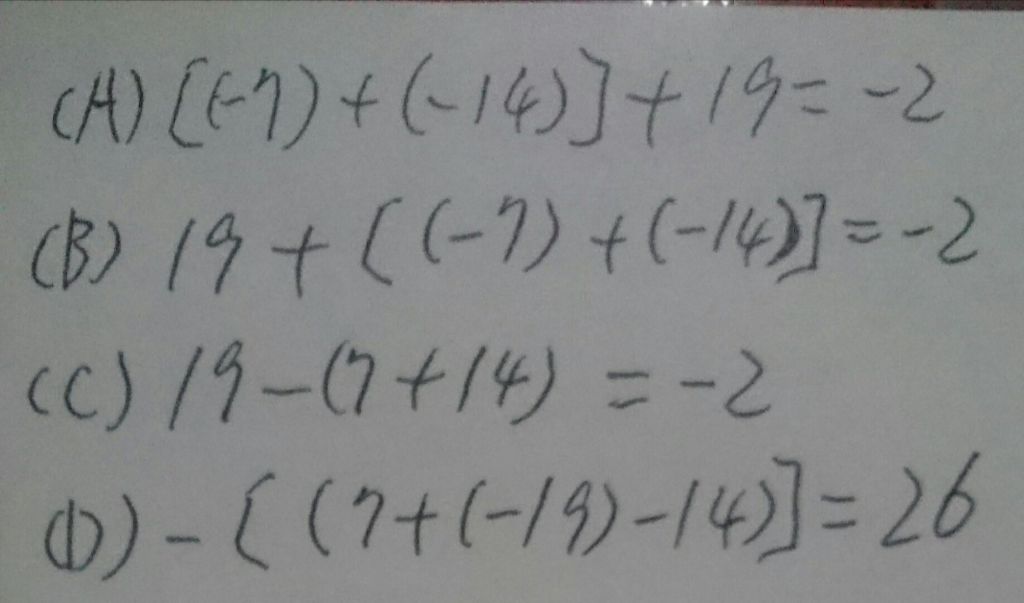 (A) [(-7)+(-14)]+19=-2
(B) 19+[(-7)+(-14)]=-2
(C) 19-(7+14)=-2
(D) -[(7+(-19)-14)]=26